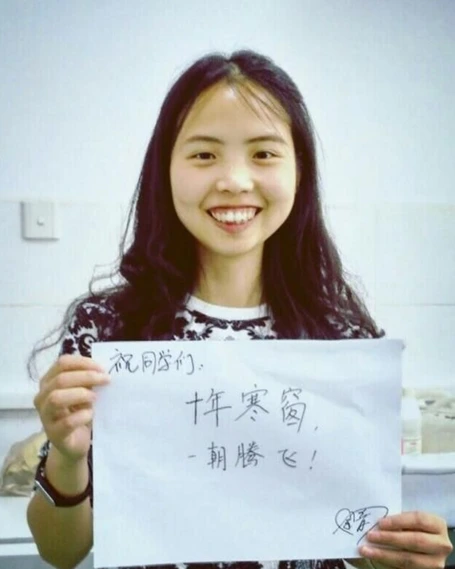 祝同学们：
十年寒窗，
一朝腾飞！